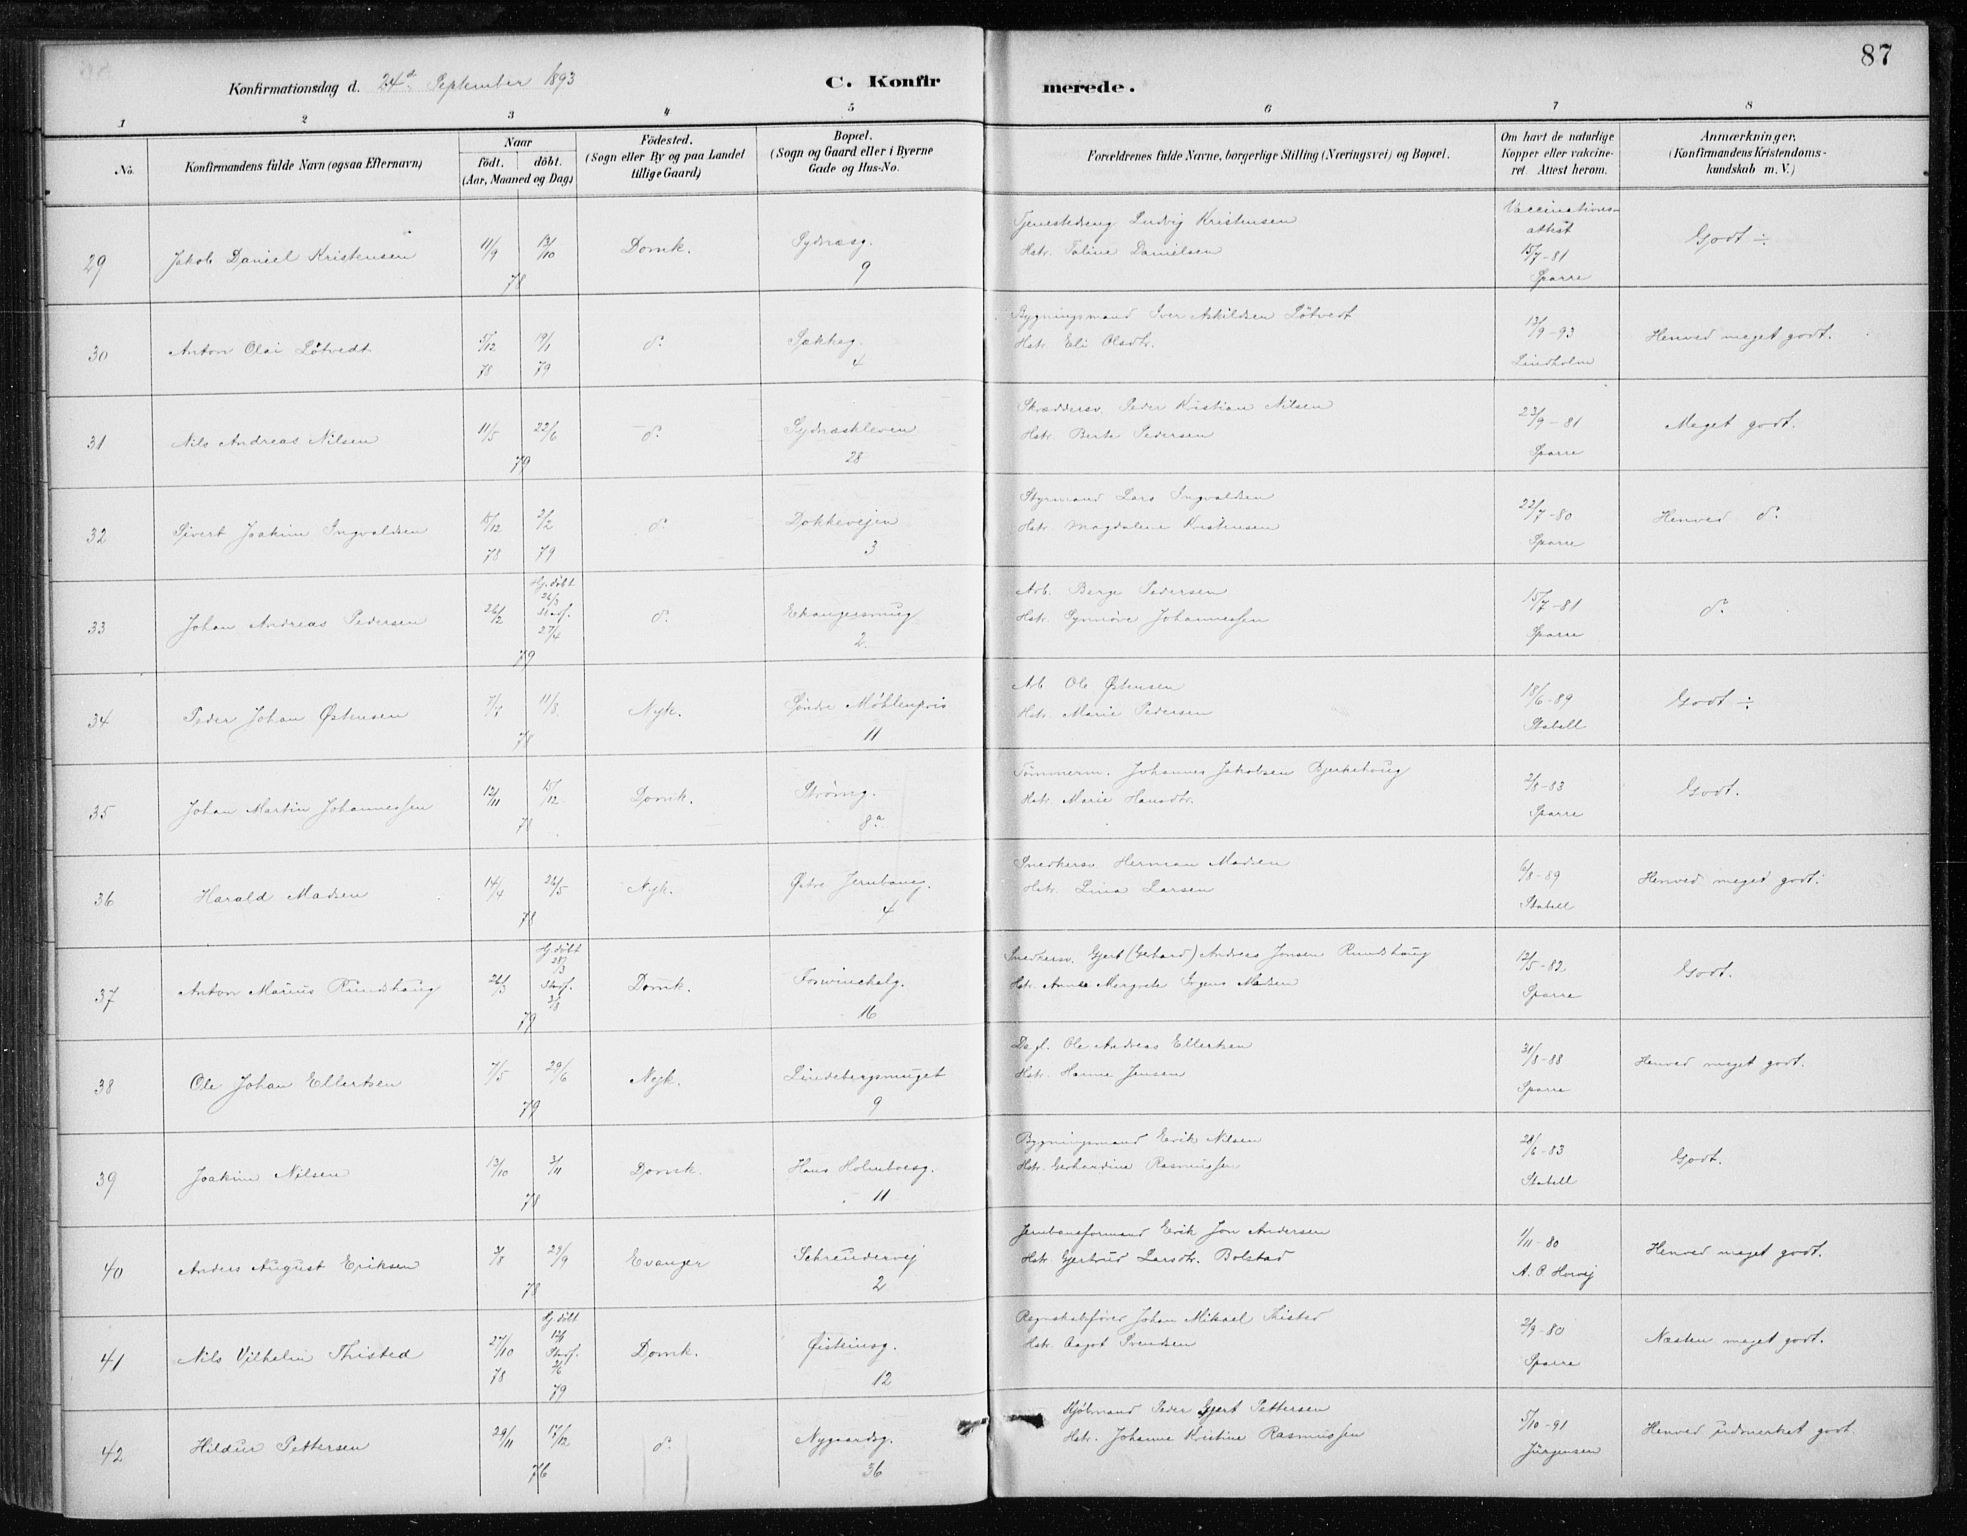 87
Konfirmationsdag d. 24de September 1893
C. Konfirmerede.
1 2 3 4 5 6 7 8
No.
Konfirmandens fulde Navn (ogsaa Efternavn)
Naar
födt. döbt.
(Aar, Maaned og Dag)
Födested.
(Sogn eller By og paa Landet
tillige Gaard)
Bopæl.
(Sogn og Gaard eller i Byerne
Gade og Hus-No.
Forældrenes fulde Navne, borgerlige Stilling (Næringsvei) og Bopæl.
Om havt de naturlige
Kopper eller vakcine-
ret. Attest herom.
Anmærkninger.
(Konfirmandens Kristendoms-
kundskab m. V.)
29 Jakob Daniel Kristensen 11/9 13/10 78 Domk. Sydnæsg. 9
Tjenestedreng Ludvig Kristensen
Hstr. Taline Danielsen
Vaccinations-
attest
15/7-81
Sparre
Godt ÷
30 Anton Olai Løtvedt 5/12 78 19/1 79 do Sækkeg. 4
Bygningsmand Iver Askildsen Løtvedt
Hstr. Eli Olsdtr.
13/9-93
Lindholm
Henved meget godt.
31 Nils Andreas Nilsen 11/5 22/6 79 do Sydnæskleven 28
Skræddersv. Peder Kristian Nilsen
Hstr. Berte Pedersen
23/9-81
Sparre
Meget godt.
32 Sivert Joakim Ingvaldsen 15/12 78 2/2 79 do Dokkevejen 3
Styrmand Lars Ingvaldsen
Hstr. Magdalene Kristensen
22/7-80
Sparre
Henved do
33 Johan Andreas Pedersen 26/2 Hj.døbt 26/3 Stadf. 27/4 79 do Ekangersmug 2
Arb. Berge Pedersen
Hstr. Synnøve Johannessen
15/7-81
Sparre
do
34 Peder Johan Østensen 11/8 78 Nyk. Søndre Møhlenpris 11
Arb. Ole Østensen
Hstr. Marie Pedersen
18/6-89
Stabell
Godt ÷
35 Johan Martin Johannessen 12/11 15/12 78 Domk. Strømg. 8a
Tømmerm. Johannes Jakobsen Bjerkehoug
Hstr. Marie Hansdtr.
2/8-83
Sparre
Godt.
36 Harald Madsen 14/4 26/5 78 Nyk. Østre Jernbaneg. 4
Snedkersv. Herman Madsen
Hstr. Lina Larsen
6/8-89
Stabell
Henved meget godt.
37 Anton Marius Rundhaug 26/3 Hj.døbt 28/3 Stadf. 3/8 79 Domk. Forvinckelg. 16
Snedkersv. Gjert (Gerhard) Andreas Jonsen Rundhaug
Hstr. Anne Margrete Madsen
12/5-82
Sparre
Godt.
38 Ole Johan Ellertsen 7/5 29/6 79 Nyk. Lindebergsmuget 9
Dagl. Ole Andreas Ellertsen
Hstr. Hanne Jensen
31/8-88
Sparre
Henved meget godt.
39 Joakim Nilsen 13/10 3/11 78 Domk. Hans Holmboesg. 11
Bygningsmand Erik Nilsen
Hstr. Gerhardine Rasmussen
28/6-83
Stabell
Godt.
40 Anders August Eriksen 3/8 29/9 78 Evanger Schreudervej 2
Jernbaneformand Erik Jon Andersen
Hstr. Gjertrud Larsdtr. Bolstad
1/11-80
A. O. Horvej
Henved meget godt.
41 Nils Vilhelm Thisted 27/10 78 Hj.døbt Stadf. 79 Domk. Øisteinsg. 12
Regnskabsfører Johan Mikael Thisted
Hstr. Aagot Svendsen
2/9-80
Sparre
Næsten meget godt.
42 Hildur Pettersen 29/11 17/12 76 do Nygaardsg. 36
Kjølmand Peder Gjert Pettersen
Hstr. Johanne Kristine Rasmussen
5/10-91
Jürgensen
Henved udmerket godt.